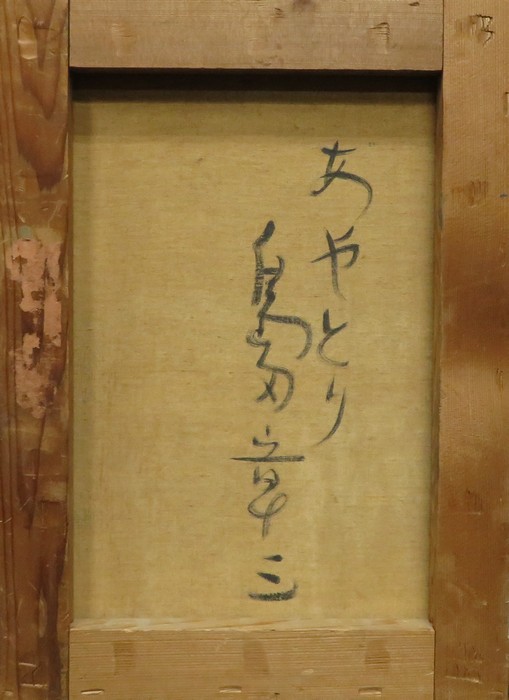 あやとり
島田章三